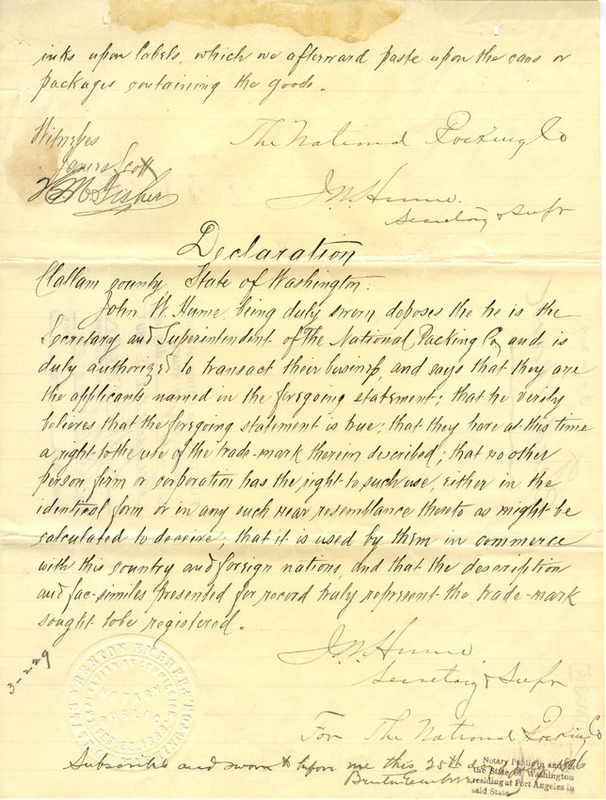 inks upon labels, which we afterward paste upon the cans or
packages containing the goods.
Witnesses
The National Packing Co
James Scott
Fisher
J. W. Hume.
Secretary & Supt
Declaration
Clallam county, State of Washington.
John W. Hume being duly sworn deposes the he is the
Secretary and Superintendent of The National Packing Co, and is
duly authorized to transact their business, and says that they are
the applicants named in the foregoing statement; that he verily
believes that the foregoing statement is true; that they have at this time
a right to the use of the trade-mark therein described; that no other
person firm or corporation has the right to such use, either in the
identical form or in any such near resemblance thereto as might be
calculated to deceive; that it is used by them in commerce
with this country and foreign nations, and that the description
and fac-similes presented for record truly represent the trade-mark
sought to be registered.
J. W. Hume.
Secretary & Supt
3-229
For The National Packing Co
NOTARY
PUBLIC
Subscribed and sworn to before me this 25th day 1896
Notary Public in and for
the State of Washington
residing at Port Angeles in
said State